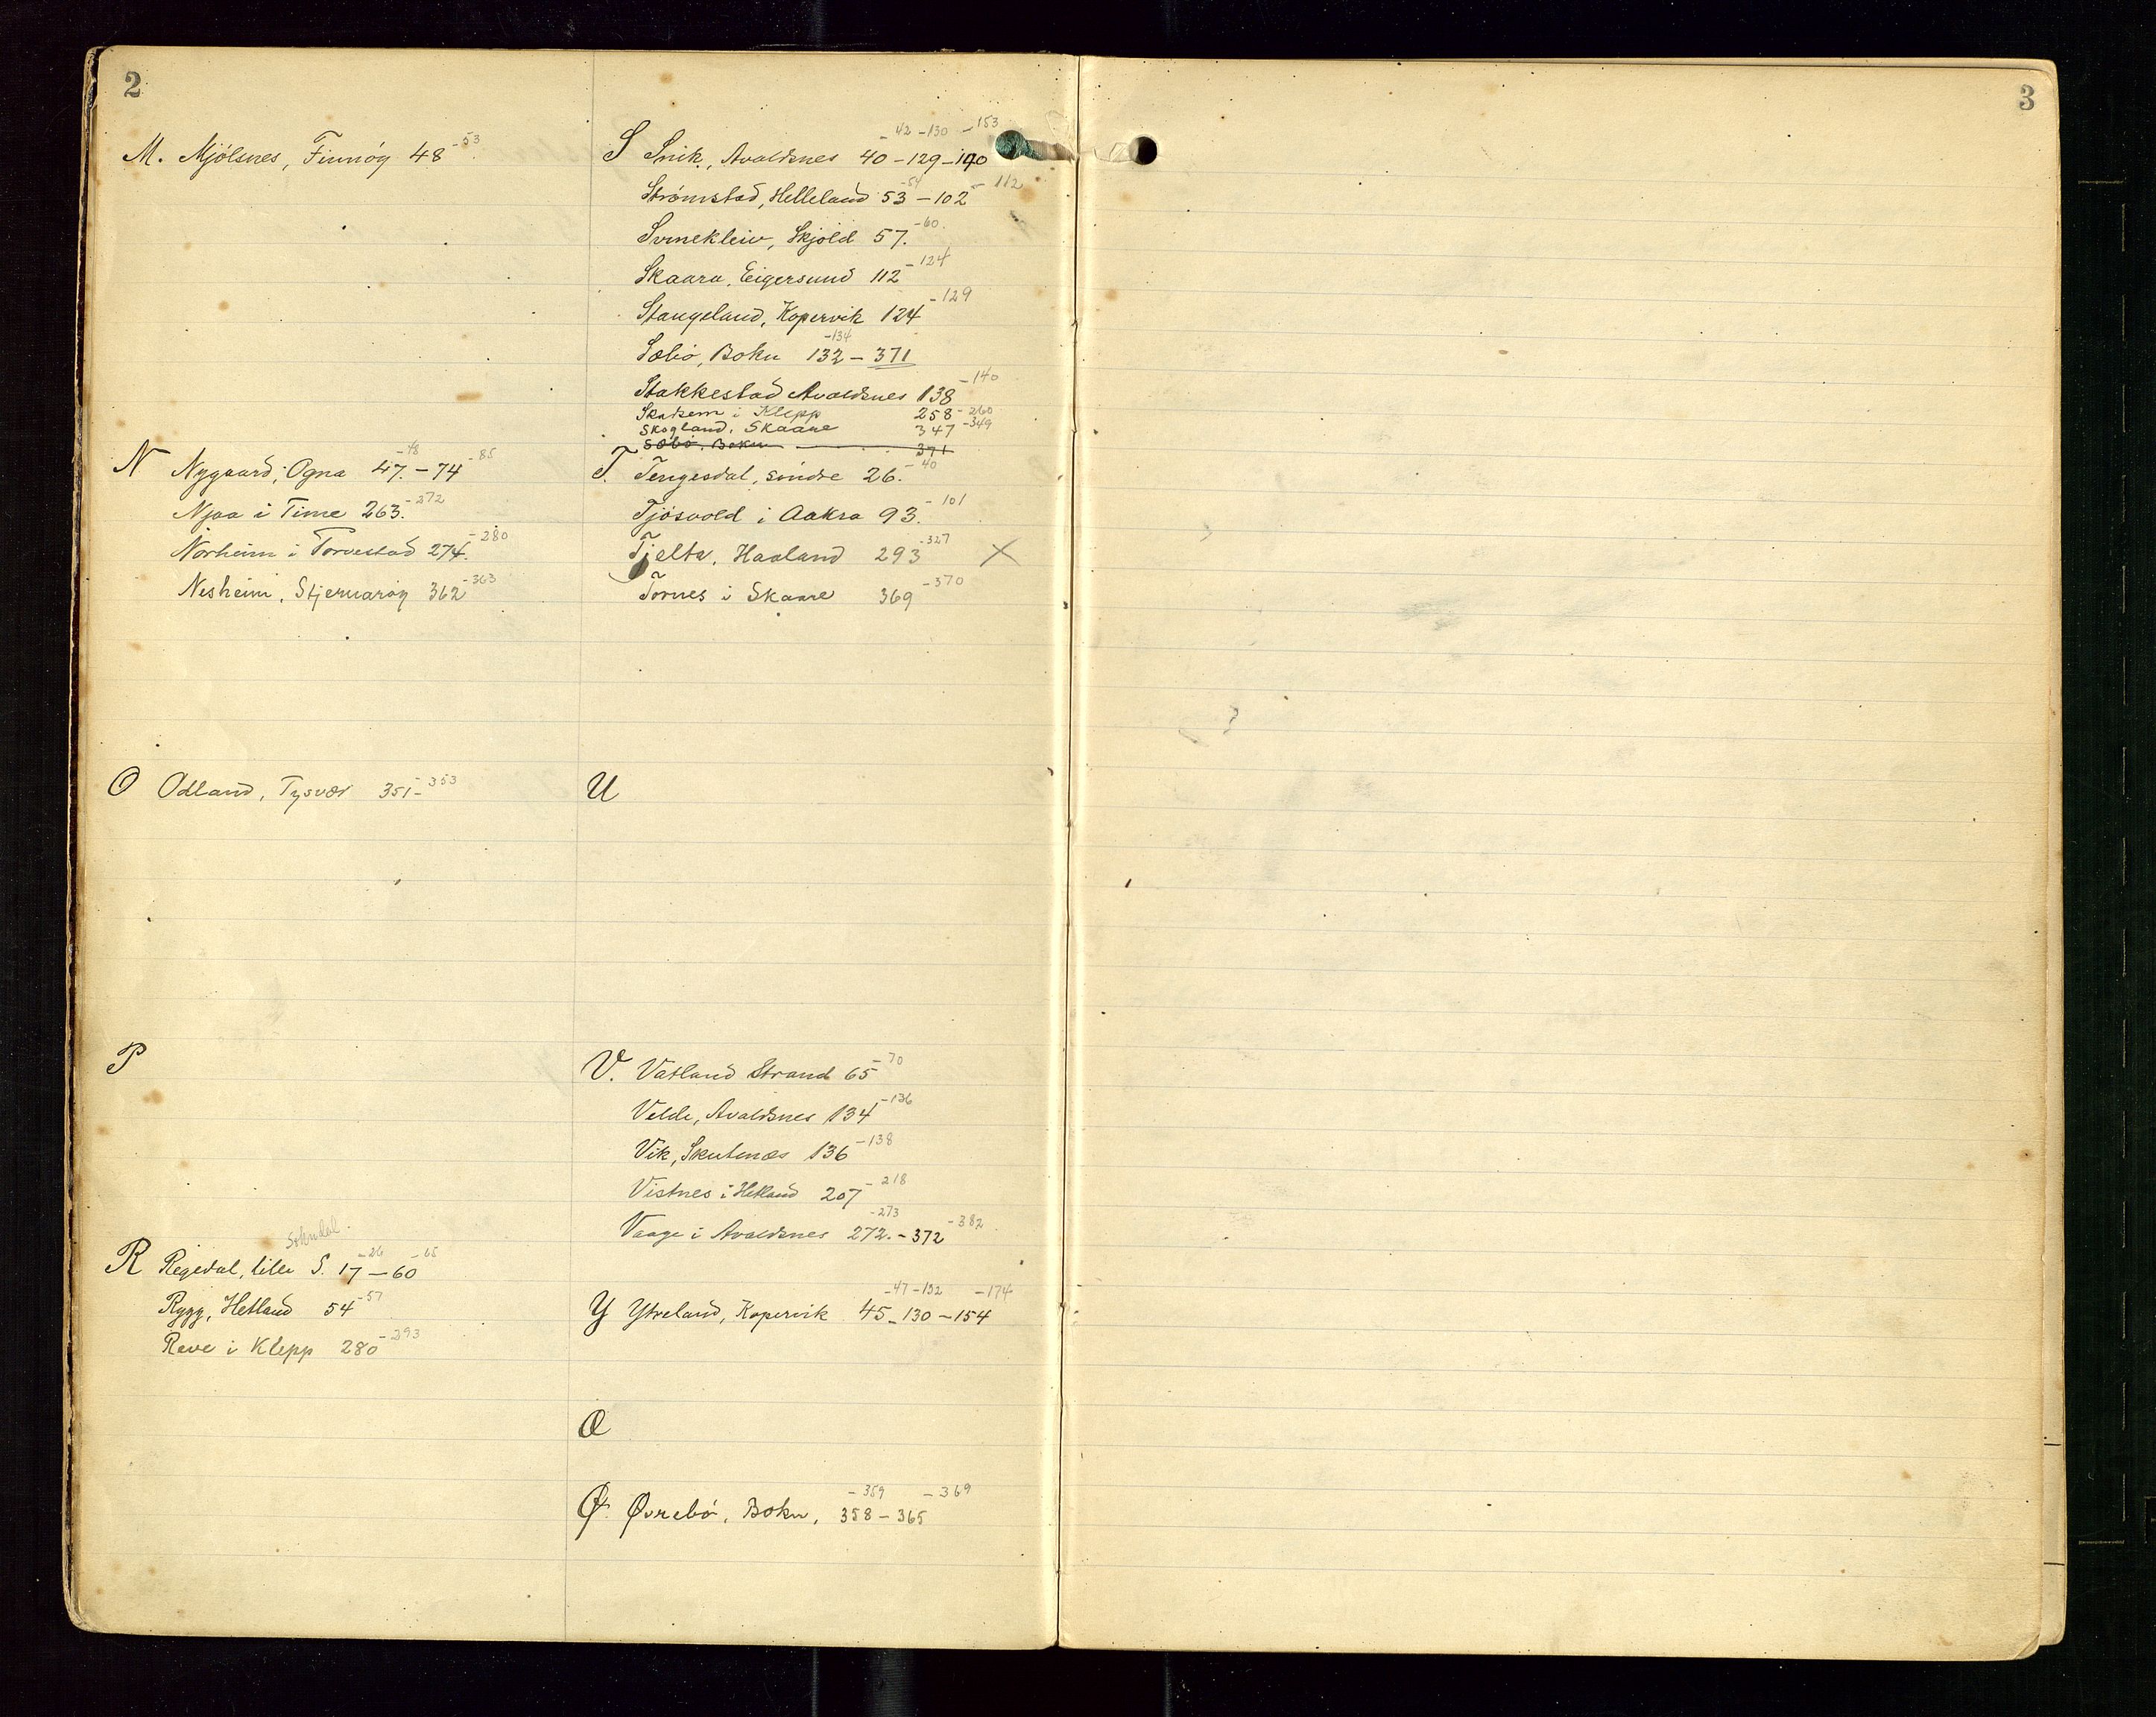 2
M. Mjölsnes, Finnöy 48 -53
N Nygaard, Ogna 47. -48 - 74 -85
Njaa i Time 263. -272
Norheim i Torvestad 274. -280
Nesheim, Stjernaröy 362 -363
O Odland, Tysvær 351- -353
P
Sokndal.
R Regedal, lille S. 17 -26 - 60 -65
Rygg, Hetland 54 -57
Reve i Klepp 280 -293
-42 -130 -153
S Snik, Avaldsnes 40 - 129 - 140
Strømstad, Helleland 53 -54 - 102 -112
Svinekleiv, Skjold 57. -60.
Skaara, Eigersund 112 -124
Stangeland, Kopervik 124 -129
-134
Sæbö, Bokn 132 - 371
Stakkestad Avaldsnes 138 -140
Skatsem i Klepp 258 -260
Skogland, Skaare 347 -349
Sæbö, Bokn 371
T. Tengesdal, söndre 26. -40
Tjösvold i Aakra 93. -101
Tjelta, Haaland 293 -327 X
Tornes i Skaare 369 -370
U
V. Vatland Strand 65 -70
Velde, Avaldsnes 134 -136
Vik, Skutenæs 136 -138
Vistnes i Hetland 207 -218
-273
Vaage i Avaldsnes 272. - 372 -382
-47 -132 -174
Y Ytreland, Kopervik 45 - 130 - 154
Æ
-359 -369
Ø. Øvrebö, Bokn, 358 - 365
3